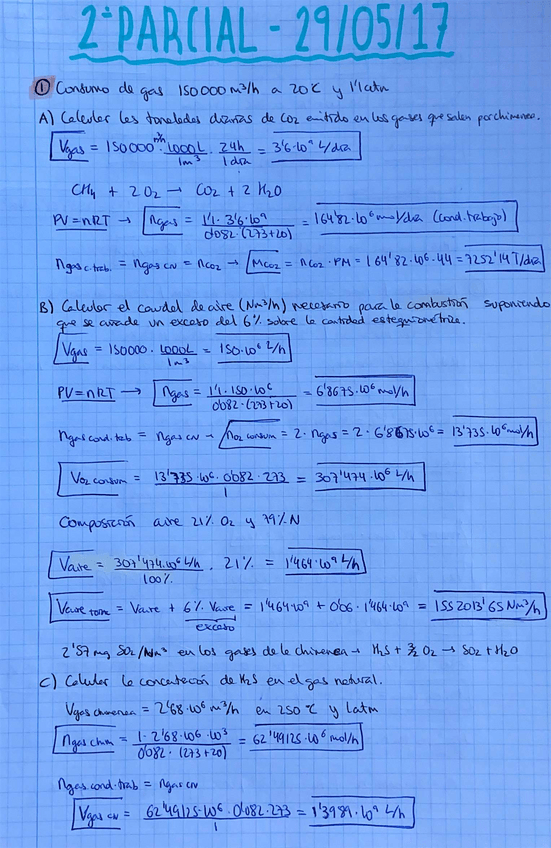 2º PARCIAL - 29/05/17
① Consumo de gas 150000 m³/h a 20ºC y 1'1 atm
A) Calcular las toneladas diarias de CO2 emitido en los gases que salen por chimenea.
Vgas = 150000 m³/h · 1000L/1m³ · 24h/1día = 3'6·10⁹ L/día
CH4 + 2O2 → CO2 + 2H2O
PV=nRT → ngas = 1'1 · 3'6·10⁹ / 0'082 · (273+20) = 164'82·10⁶ mol/día (cond. trabajo)
ngas c.trab. = ngas CN = nCO2 → mCO2 = nCO2 · PM = 164'82·10⁶·44 = 7252'14 T/día
B) Calcular el caudal de aire (Nm³/h) necesario para la combustión suponiendo
que se añade un exceso del 6% sobre la cantidad estequiométrica.
Vgas = 150000 · 1000L/1m³ = 150·10⁶ L/h
PV=nRT → ngas = 1'1 · 150·10⁶ / 0'082 · (273+20) = 6'8675·10⁶ mol/h
ngas cond.trab = ngas CN → nO2 consum = 2 · ngas = 2 · 6'8675·10⁶ = 13'735·10⁶ mol/h
VO2 consum = 13'735·10⁶ · 0'082 · 273 / 1 = 307'474·10⁶ L/h
Composición aire 21% O2 y 79% N
Vaire = 307'474·10⁶ L/h / 100% · 21% = 1'464·10⁹ L/h
Vaire total = Vaire + 6% Vaire = 1'464·10⁹ + 0'06 · 1'464·10⁹ = 1552013'65 Nm³/h
exceso
2'57 mg SO2/Nm³ en los gases de la chimenea → H2S + 3/2 O2 → SO2 + H2O
C) Calcular la concentación de H2S en el gas natural.
Vgas chimenea = 2'68·10⁶ m³/h en 250ºC y 1atm
ngas chim = 1 · 2'68·10⁶ · 10³ / 0'082 · (273+20) = 62'49125·10⁶ mol/h
ngas cond.trab = ngas CN
Vgas CN = 62'49125·10⁶ · 0'082 · 273 / 1 = 1'3989·10⁹ L/h